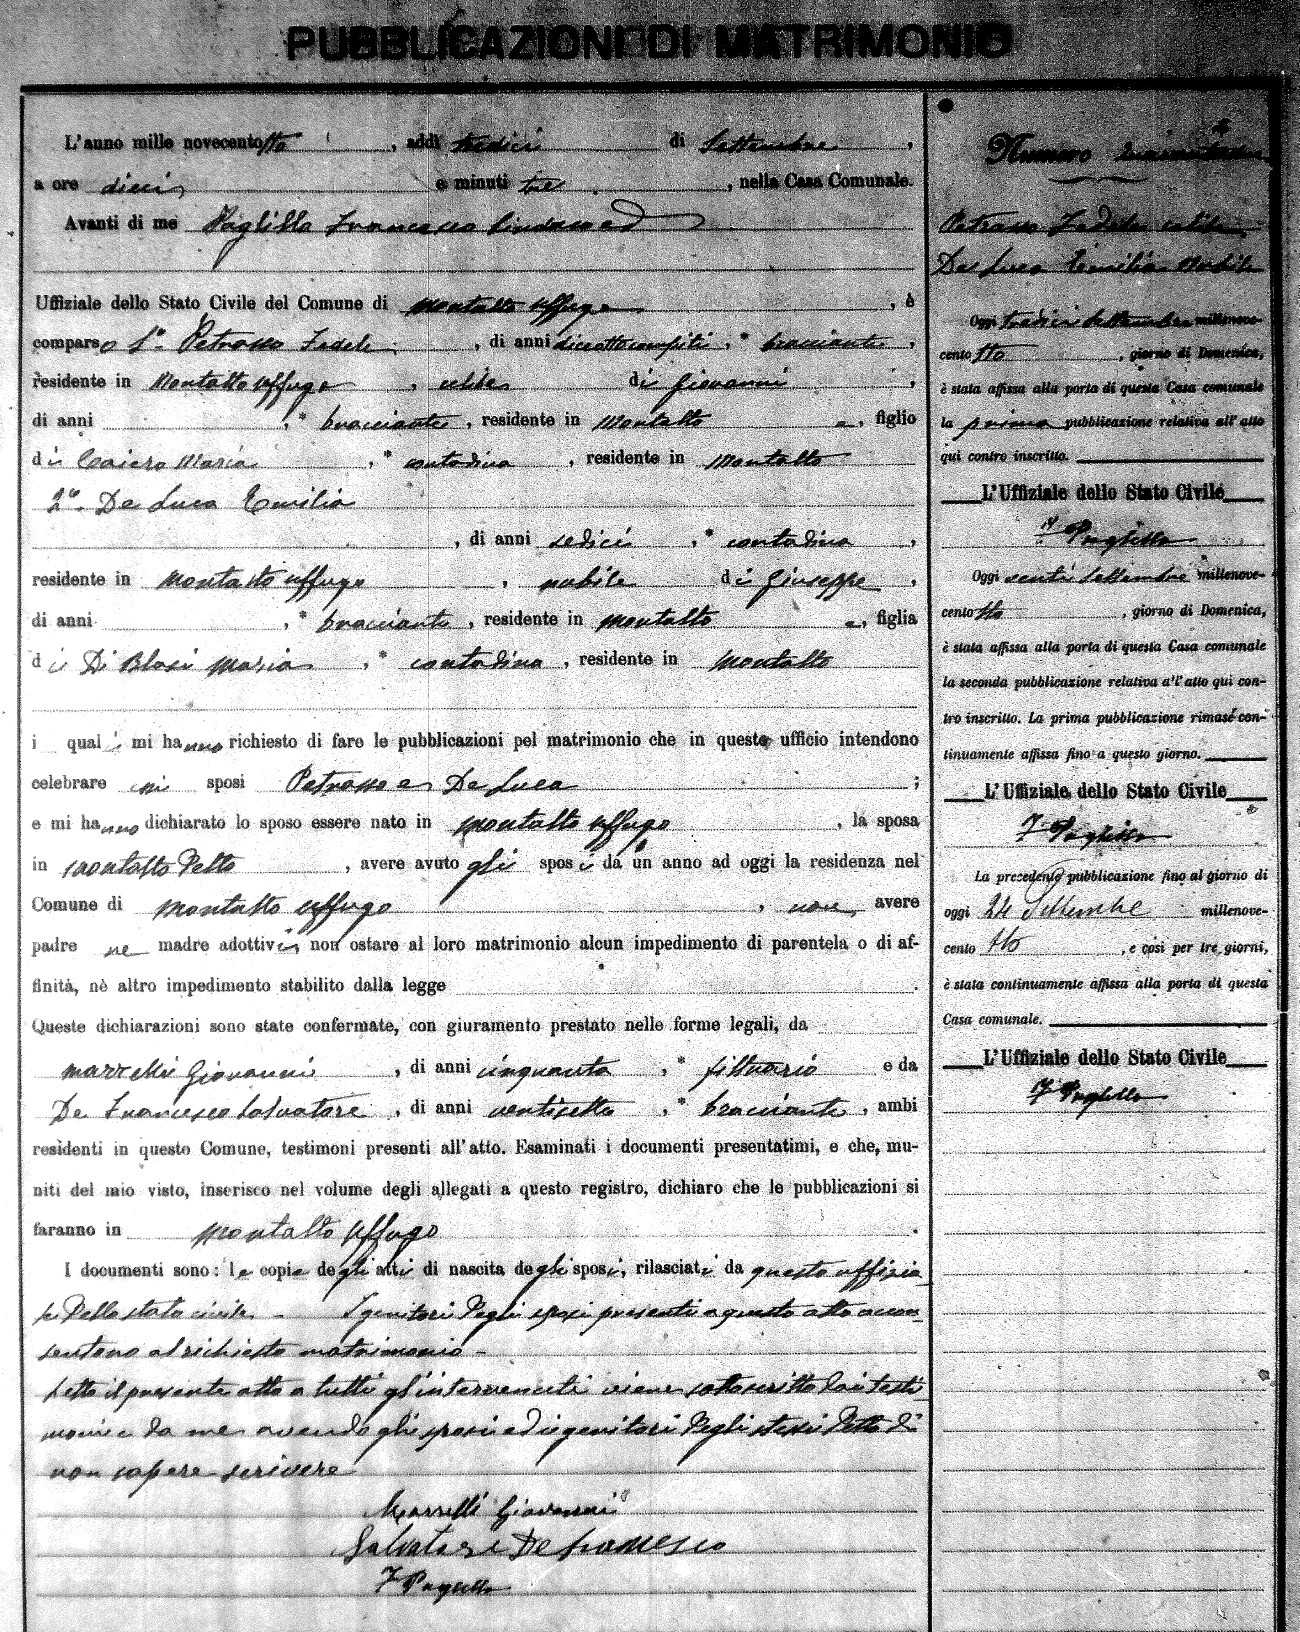 PUBBLICAZIONE DI MATRIMONIO
L'anno mille novecentotto, addì tredici di Settembre,
a ore dieci e minuti tre, nella Casa Comunale.
Avanti di me Francesco Sindaco ed
Uffiziale dello Stato Civile del Comune di Montalto Uffugo, è
comparso 1º Petrasso Fedele, di anni diciotto compiti, bracciante,
residente in Montalto Uffugo, celibe di Giovanni,
di anni , bracciante, residente in Montalto e, figlio
di Caiero Maria, contadina, residente in Montalto
2º De Luca Emilia
, di anni sedici, contadina,
residente in Montalto Uffugo, nubile di Giuseppe,
di anni , bracciante, residente in Montalto e, figlia
di Di Blasi Maria, contadina, residente in Montalto
i quali mi hanno richiesto di fare le pubblicazioni pel matrimonio che in questo ufficio intendono
celebrare sposi Petrasso e De Luca ;
e mi hanno dichiarato lo sposo essere nato in Montalto Uffugo, la sposa
in Montalto detto, avere avuto gli sposi da un anno ad oggi la residenza nel
Comune di Montalto Uffugo, non avere
padre ne madre adottivi, non ostare al loro matrimonio alcun impedimento di parentela o di af-
finità, nè altro impedimento stabilito dalla legge .
Queste dichiarazioni sono state confermate, con giuramento prestato nelle forme legali, da
Marzelli Giovanni, di anni cinquanta, fittuario e da
De Francesco Salvatore, di anni ventisette, bracciante, ambi
residenti in questo Comune, testimoni presenti all'atto. Esaminati i documenti presentatimi, e che, mu-
niti del mio visto, inserisco nel volume degli allegati a questo registro, dichiaro che le pubblicazioni si
faranno in Montalto Uffugo .
I documenti sono: le copie degli atti di nascita degli sposi, rilasciati da questo uffizia
le dello stato civile. - I genitori degli sposi presenti a questo atto accon-
sentono al richiesto matrimonio -
Letto il presente atto a tutti gl'intervenuti viene sottoscritto dai testi
moni e da me avendo gli sposi ed i genitori degli stessi detto di
non sapere scrivere
Marzelli Giovanni
Salvatore De Francesco
Numero
Petrasso Fedele celibe
De Luca Emilia Nubile
Oggi tredici Settembre millenove-
centotto, giorno di Domenica,
è stata affissa alla porta di questa Casa comunale
la prima pubblicazione relativa all'atto
qui contro inscritto.
L'Uffiziale dello Stato Civile
Oggi venti Settembre millenove-
centotto, giorno di Domenica,
è stata affissa alla porta di questa Casa comunale
la seconda pubblicazione relativa all'atto qui con-
tro inscritto. La prima pubblicazione rimase con-
tinuamente affissa fino a questo giorno.
L'Uffiziale dello Stato Civile
La precedente pubblicazione fino al giorno di
oggi 24 Settembre millenove-
cento tto, e così per tre giorni,
è stata continuamente affissa alla porta di questa
Casa comunale.
L'Uffiziale dello Stato Civile